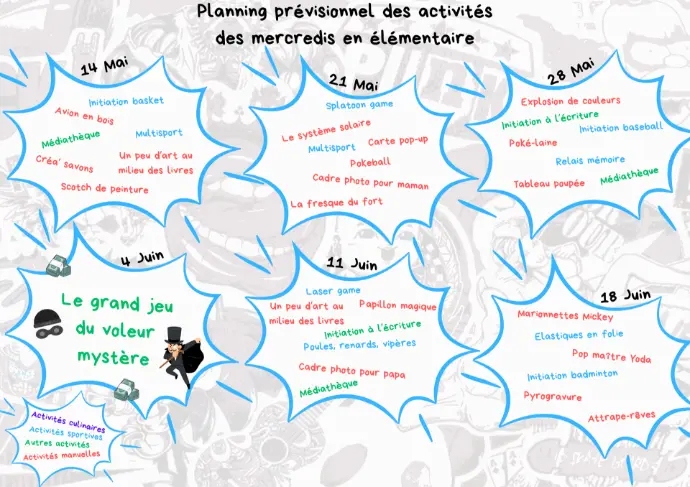 Planning prévisionnel des activités
des mercredis en élémentaire
14 Mai
Initiation basket
Avion en bois
Médiathèque
Multisport
Créa' savons
Un peu d'art au
milieu des livres
Scotch de peinture
21 Mai
Splatoon game
Le système solaire
Multisport
Carte pop-up
Pokeball
Cadre photo pour maman
La fresque du fort
28 Mai
Explosion de couleurs
Initiation à l'écriture
Initiation baseball
Poké-laine
Relais mémoire
Tableau poupée
Médiathèque
4 Juin
Le grand jeu
du voleur
mystère
11 Juin
Laser game
Un peu d'art au
milieu des livres
Papillon magique
Initiation à l'écriture
Poules, renards, vipères
Cadre photo pour papa
Médiathèque
18 Juin
Marionnettes Mickey
Elastiques en folie
Pop maître Yoda
Initiation badminton
Pyrogravure
Attrape-rêves
Activités culinaires
Activités sportives
Autres activités
Activités manuelles